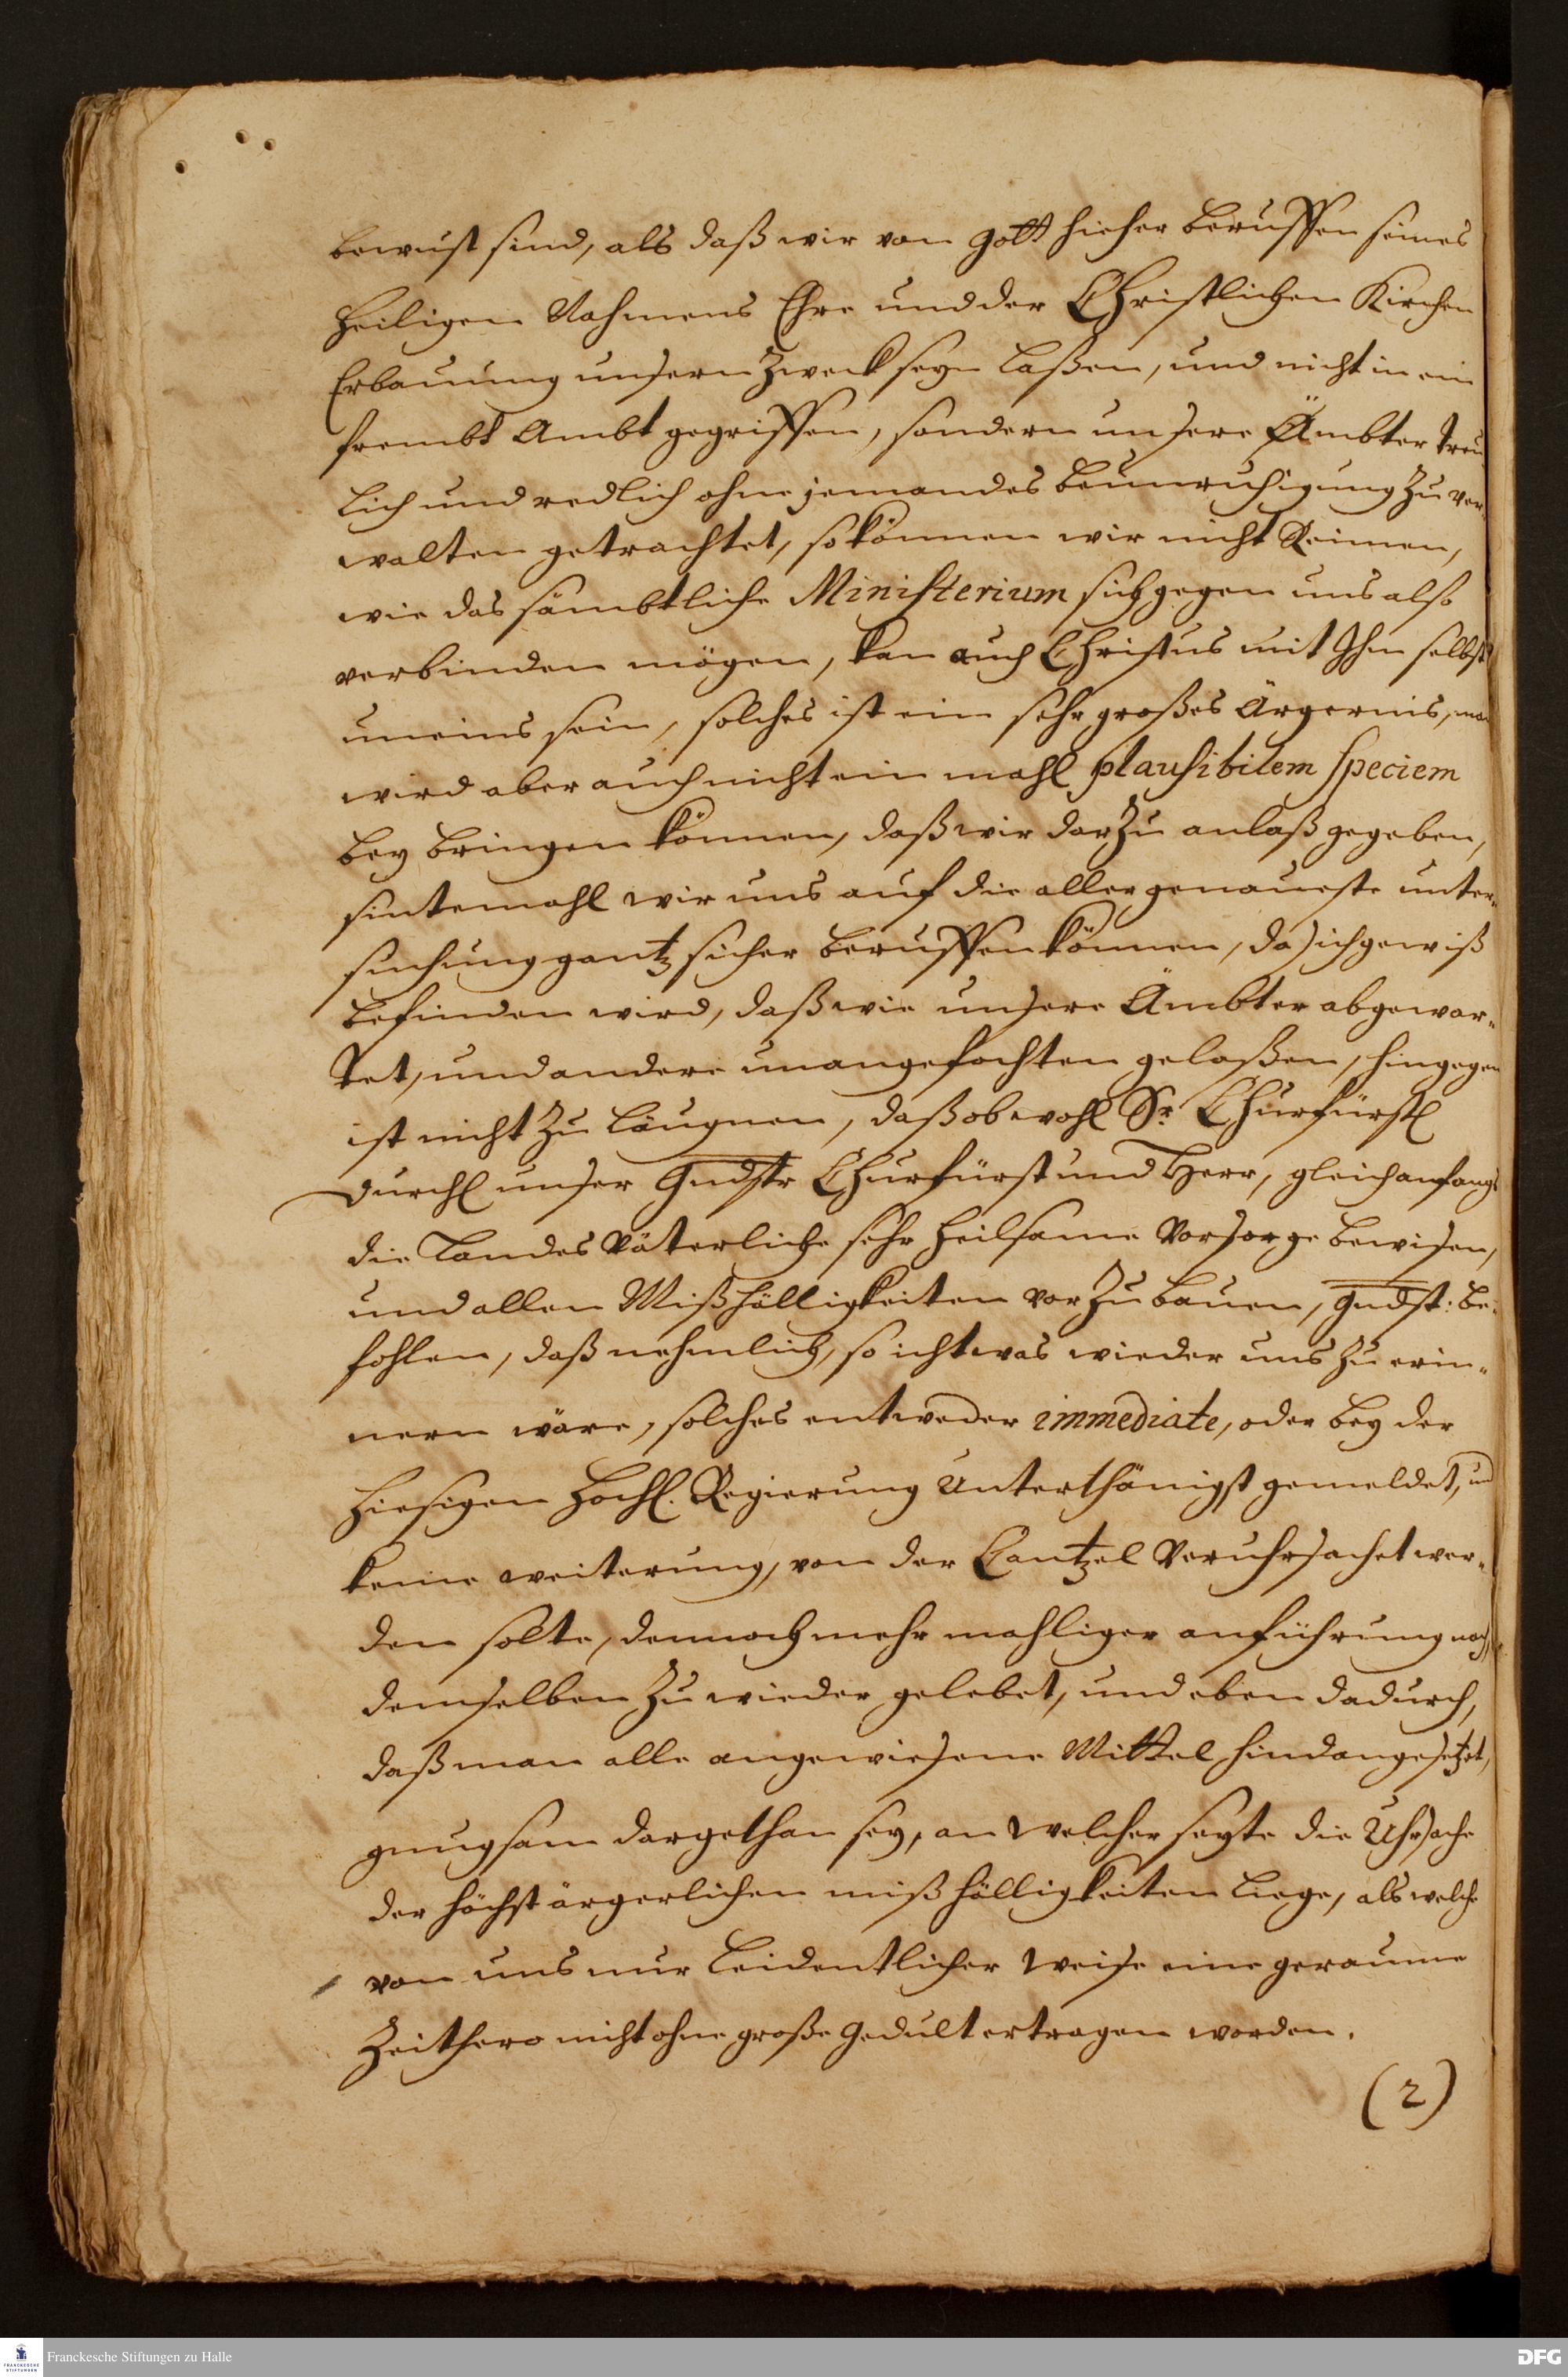 bewust sind, als daß wir von Gott hieher beruffen seines
heiligen Nahmens Ehre und der Christlichen Kirchen
Erbauung unsern Zweck seyn laßen, und nicht in ein
frembt Ambt gegriffen, sondern unsere Ämbter treu
lich und redlich ohne jemandes beunruhigung zu ver-
walten getrachtet, so können wir nicht Reimen,
wie das sämbtliche Ministerium sich gegen uns also
verbinden mögen, kan auch Christus mit Ihm selbst
uneins sein, solches ist ein sehr großes Ärgernis, man
wird aber auch nicht ein mahl plausibilem speciem
bey bringen können, daß wir darzu anlaß gegeben,
sintemahl wir uns auf die aller genaueste unter-
suchung gantz sicher beruffen können, da sich gewiß
befinden wird, daß wir unsere Ämbter abgewar-
tet, und andere unangefochten gelaßen, hingegen
ist nicht zu läugnen, daß obwohl Sr. Churfürstl
Durchl unser Gndstr Churfürst und Herr, gleich anfangs
die Landes Väterliche sehr heilsame Vorsorge bewisen,
und allen Mißhälligkeiten vor zu bauen, Gndst: be-
fohlen, daß nehmlich, so ichtwas wieder uns zu erin-
nern wäre, solches entweder immediate, oder bey der
hiesigen Hochl. Regierung Unterthänigst gemeldet, und
keine weiterung, von der Cantzel Veruhrsachet wer-
den solte, dennoch mehr mahliger anführung nach,
demselben zu wieder gelebet, und eben dadurch,
daß man alle angewiesene Mittel hindangesetzet,
gnugsam dargethan sey, an welcher seyte die Uhrsache
der höchst ärgerlichen mißhälligkeiten liege, als welche
von uns nur leidentlicher weise eine geraume
Zeithero nicht ohne große Gedult ertragen worden.
(2)
Franckesche Stiftungen zu Halle
FRANCKESCHE STIFTUNGEN
DFG